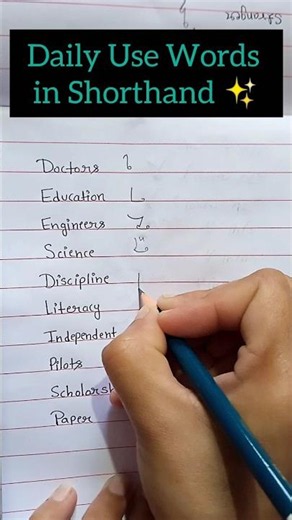 Stronger
Daily Use Words
in Shorthand ✨
Doctors
Education
Engineers
Science
Discipline
Literacy
Independent
Pilots
Paper